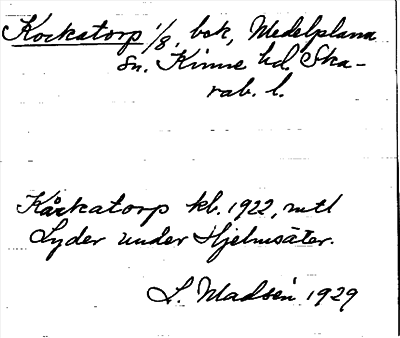 Kockatorp 1/8, bok, Medelplana
sn. Kinne hd. Ska-
rab. l.
Kårkatorp kb. 1922, mtl
Lyder under Hjelmsäter.
L. Madsén 1929